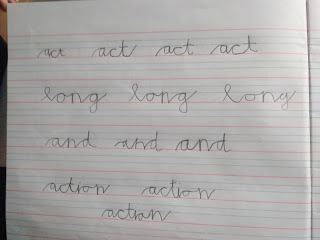 act act act act
long long long
and and and
action action
action